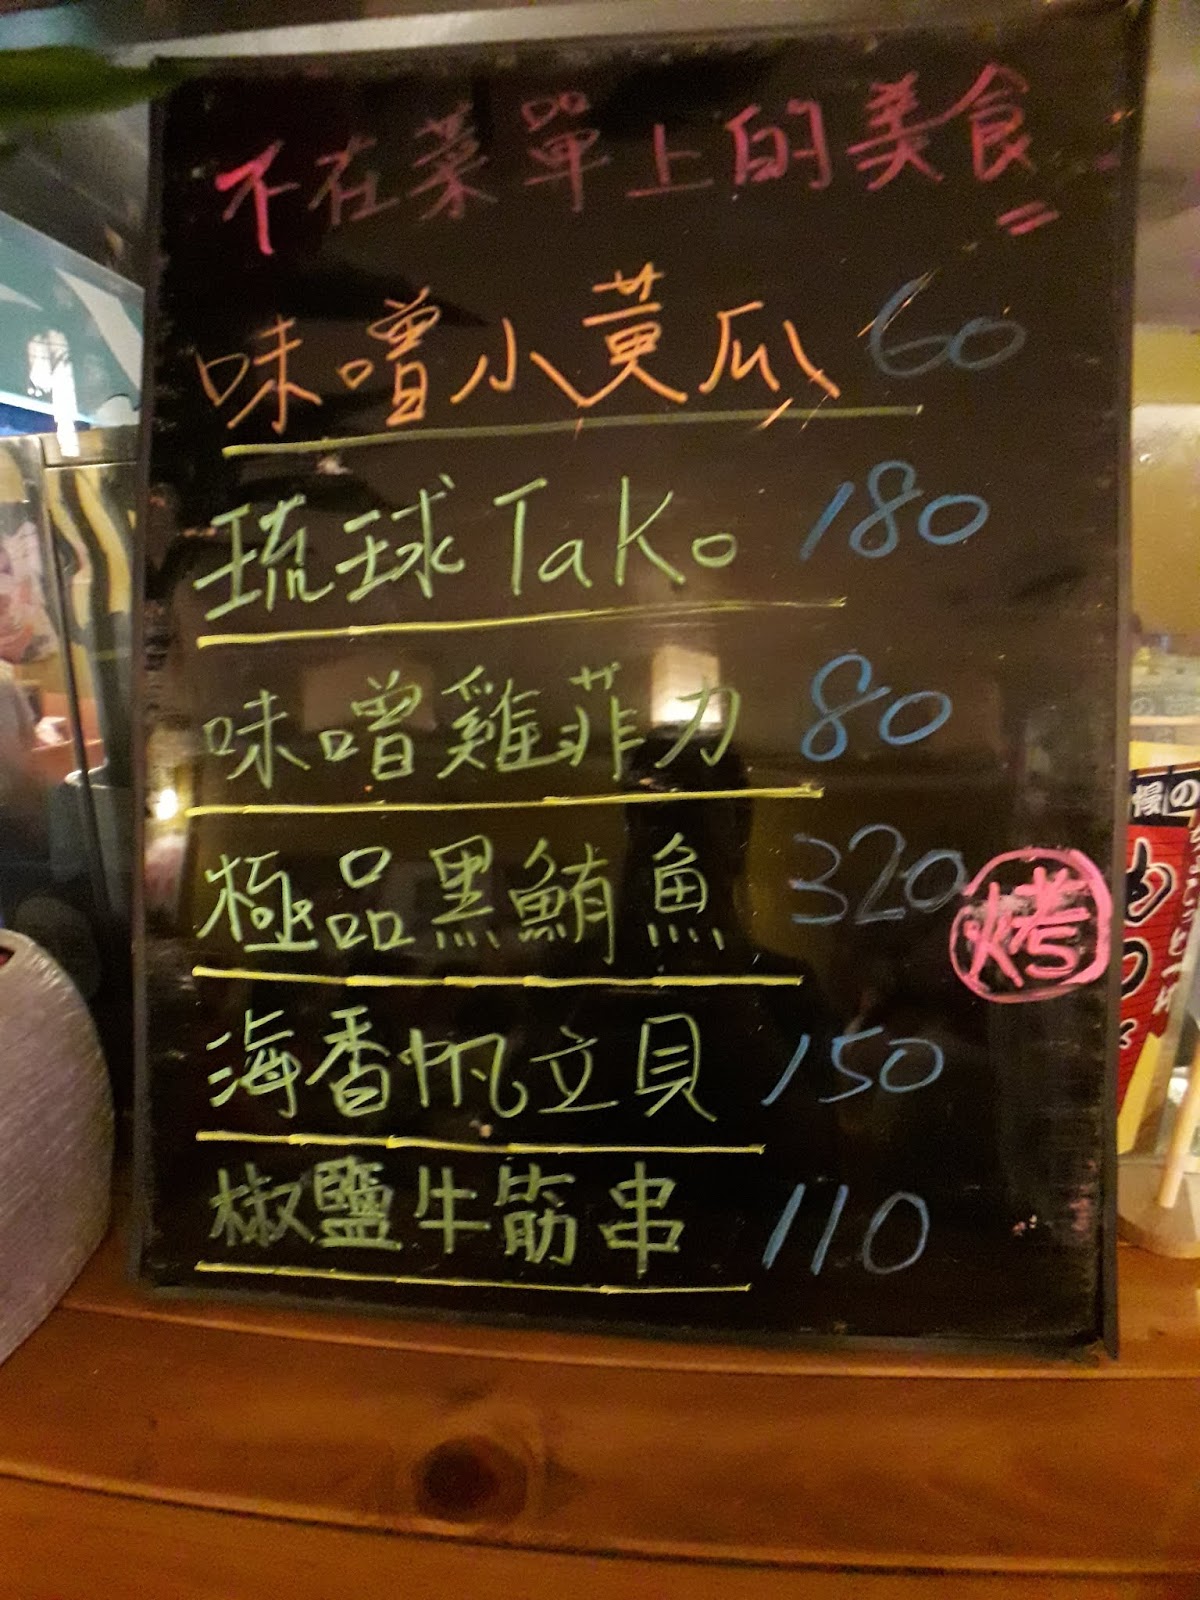 不在菜單上的美食
味噌小黃瓜 60
琉球TaKo 180
味噌雞菲力 80
極品黑鮪魚 320 烤
海香帆立貝 150
椒鹽牛筋串 110
慢の